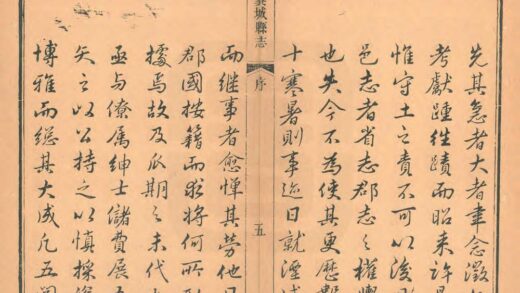 先其急者大者聿念徵
考獻踵往蹟而昭来許是
惟守土之責不可以
邑志者省志郡志之權輿
也失今不為使其更歷數
十寒暑則事迹日就湮
翼城縣志
序
五
而继事者愈憚其劳他日
郡國按籍而求将何所
據焉故及瓜期之未代
亟与僚属紳士儲費展
矢之以公持之以慎採
博雅而總其大成凡五閱